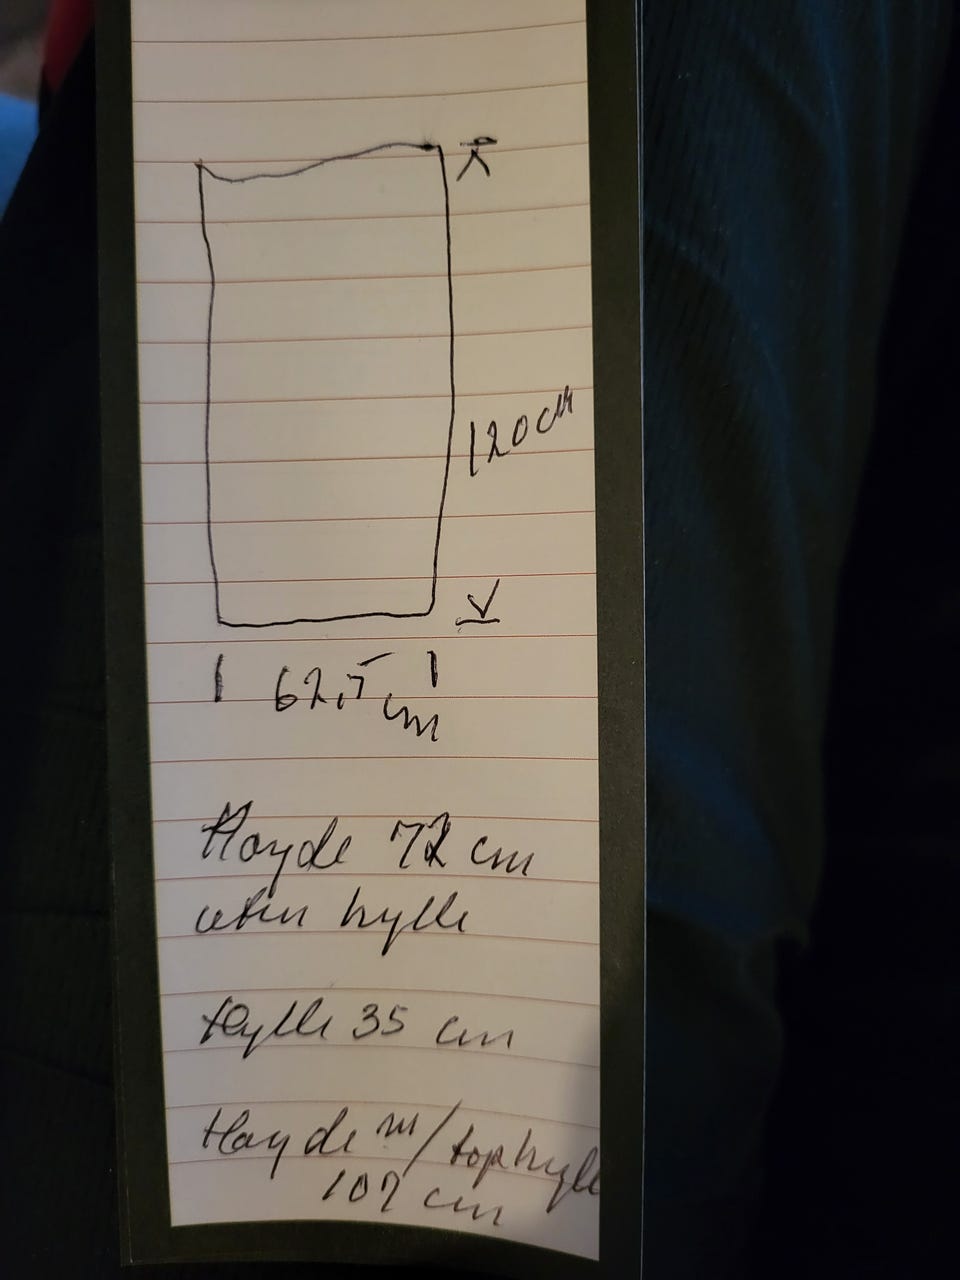 120 cm
62,5
cm
Høyde 72 cm
uten hylle
Hylle 35 cm
Høyde m/tophylle
107 cm